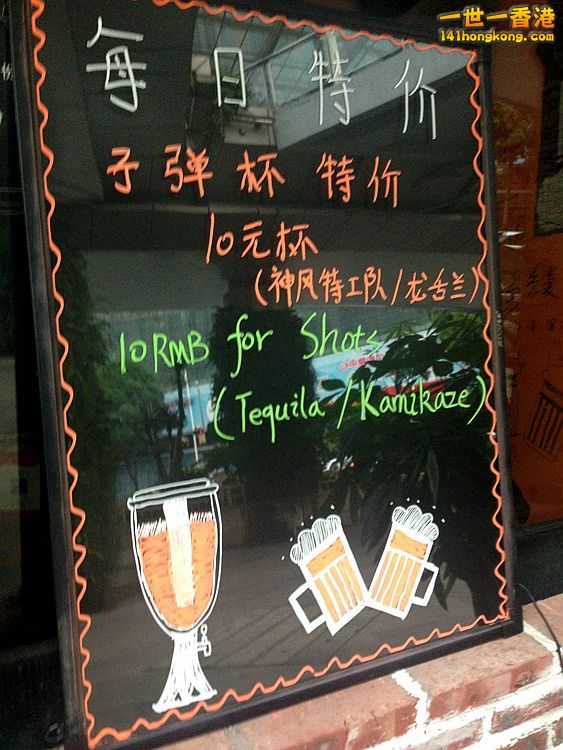 一世一香港
141hongkong.com
每日特价
子弹杯 特价
10元杯
(神风特工队/龙舌兰)
10RMB for Shots
(Tequila/Kamikaze)